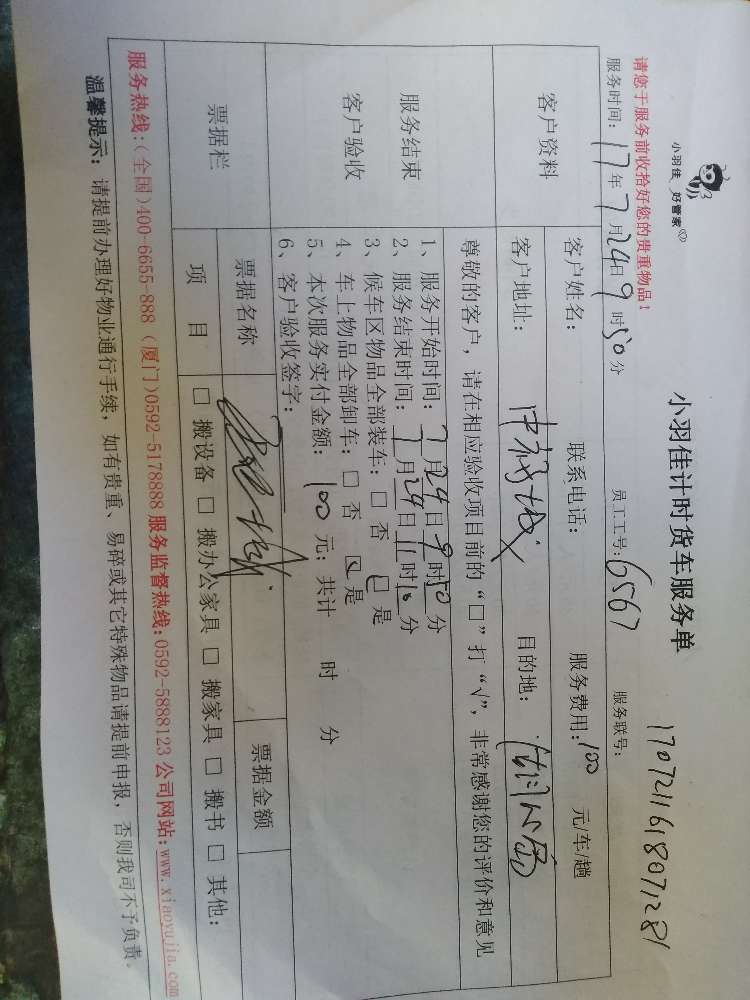 小羽佳 好管家
小羽佳计时货车服务单
服务联号: 1707211618071281
请您于服务前收拾好您的贵重物品!
服务时间: 17年7月24日9时50分 员工工号: 6567
客户资料
客户姓名: 联系电话: 服务费用:100 元/车/趟
客户地址: 中 城 目的地:
尊敬的客户，请在相应验收项目前的“□”打“√”，非常感谢您的评价和意见
服务结束
客户验收
1、服务开始时间: 7月24日9时50分
2、服务结束时间: 7月24日11时10分
3、候车区物品全部装车: □ 否 □ 是
4、车上物品全部卸车: □ 否 □ 是
5、本次服务实付金额: 100 元; 共计 时 分
6、客户验收签字:
票据栏
票据名称 票据金额
项 目 □ 搬设备 □ 搬办公家具 □ 搬家具 □ 搬书 □ 其他:
服务热线:(全国)400-6655-888 (厦门)0592-5178888 服务监督热线:0592-5888123 公司网站:www.xiaoyujia.com
温馨提示: 请提前办理好物业通行手续，如有贵重、易碎或其它特殊物品请提前申报，否则我司不予负责。